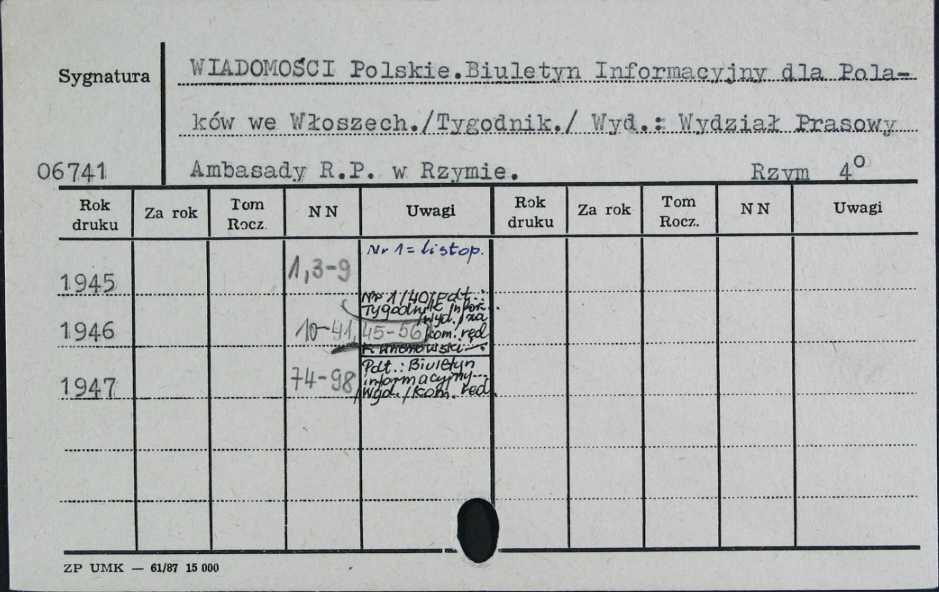 Sygnatura
WIADOMOŚCI Polskie.Biuletyn Informacyjny dla Pola-
ków we Włoszech./Tygodnik./ Wyd.: Wydział Prasowy
06741 Ambasady R.P. w Rzymie. Rzym 4º
Rok druku Za rok Tom Rocz. NN Uwagi Rok druku Za rok Tom Rocz. NN Uwagi
Nr 1 = listop.
1945 1,3-9
Nr 1/40: Pdt.:
Tygodnik
wyd./za
1946 10-41, 45-56 kom. red.
Pdt.: Biuletyn
1947 74-98 informacyjny...
Wyd./kom. red.
ZP UMK — 61/87 15 000